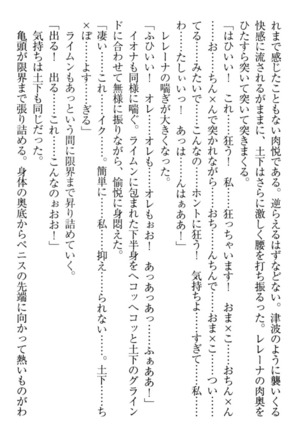 れまで感じたこともない肉悦であった。逆らえるはずなどない。津波のように襲いくる
快感に流されるがままに、土下はさらに激しく腰を打ち振るった。レレーナの肉奥を
ひたすら突いて突いて突きまくる。
「はひいい！　これ……狂う！　私……狂っちゃいます！　おま×こ……おち×ん×ん
……おち×ん×んで突かれながら……おち×ん×んでぇ……おま×こ……つい……
てる……みたいで……こんなの……ホントに狂う！　気持ちよ……すぎて……私……
わ……たしぃぃっ！　あっは……んはぁああ！」
レレーナの喘ぎが大きくなった。
「ふひいい！　オレも……オレもぉお！　あっあっあっ……ふぁああ！」
イオナも同様に喘ぐ。ライムンに包まれた下半身をヘコッヘコッと土下のグライン
ドに合わせて無様に振りながら、愉悦に身悶えた。
「凄い……これ……イク……。簡単に……私……抑え……られない……。土下……ち
×ぽ……よす……ぎる」
ライムンもあっという間に限界まで昇り詰めていく。
「出る！　出る……これ……こんなのぉおお！」
気持ちは土下も同じだった。
亀頭が限界まで張り詰める。身体の奥底からペニスの先端に向かって熱いものがわ